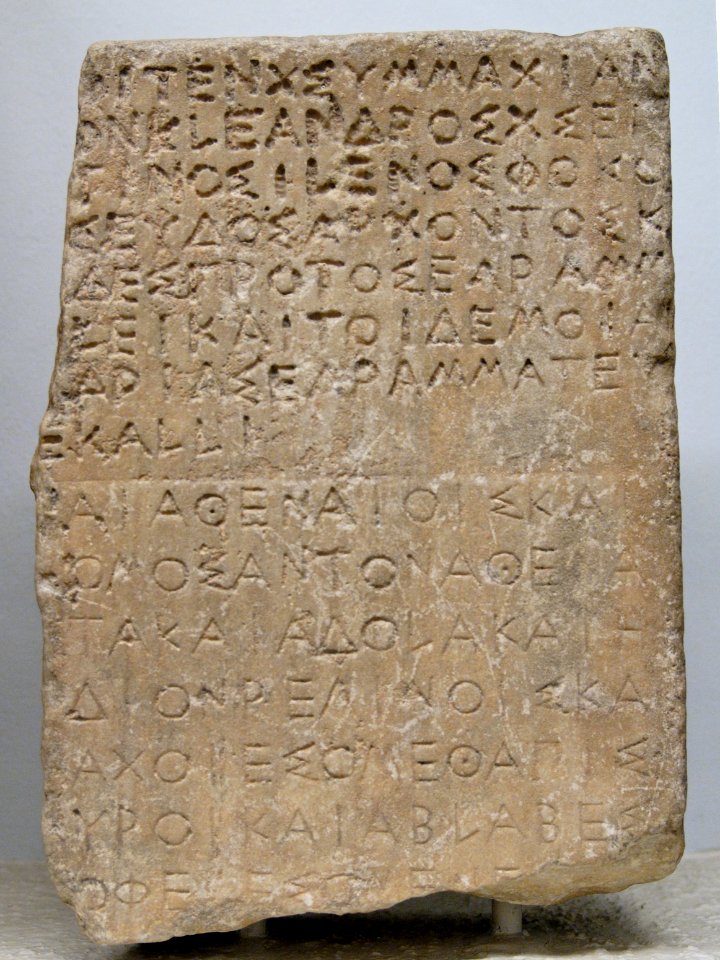 ΟΙΤΕΝΧΣΥΜΜΑΧΙΑΝ
ΟΝΚΛΕΑΝΔΡΟΣΧΣΕΝ
ΤΙΝΟΣΙΛΕΝΟΣΦΟΚΟ
ΣΕΥΔΟΣΑΡΧΟΝΤΟΣΚ
ΔΕΣΠΡΟΤΟΣΕΓΡΑΜΜ
ΛΕΙΚΑΙΤΟΙΔΕΜΟΙΑ
ΑΡΙΑΣΕΓΡΑΜΜΑΤΕΥ
ΕΚΑΛΛΙ
ΑΙΑΘΕΝΑΙΟΙΣΚΑΙ
ΟΜΟΣΑΝΤΟΝΑΘΕΝΑ
ΤΑΚΑΙΑΔΟΛΑΚΑΙΗ
ΔΙΟΝΡΕΓΙΝΟΙΣΚΑ
ΑΧΟΙΕΣΟΜΕΘΑΠΙΣ
ΥΡΟΙΚΑΙΑΒΛΑΒΕΣ
ΟΦΕΛΕΣΟΜΕ